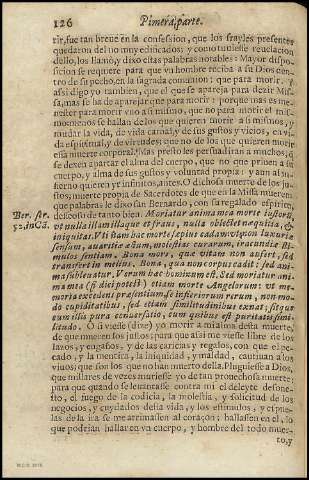 126 Pimera,parte.
rir,fue tan breue en la confession, que los frayles presentes
quedaron del no muy edificados; y como tuuiesse reuelacion
dello, los llamò, y dixo estas palabras notables: Mayor dispo-
sicion se requiere para que vn hombre reciba a su Dios den-
tro de su pecho, en la sagrada comunion: que para morir. y
assi digo yo tambien, que el que se apareja para dezir Mis-
sa, mas se ha de aparejar que para morir: porque mas es me-
nester para morir vno a si mismo, que no para morir el mis-
mo: menos se hallan de los que quieren morir a si mismos, y
mudar la vida, de vida carnal, y de sus gustos y vicios, en vi-
da espiritual, y de virtudes: que no de los que quieren morir
essa muerte corporal. Mas presto les persuadiran a muchos,
se dexen apartar el alma del cuerpo, que no que priuen a el
cuerpo, y alma de sus gustos y voluntad propia: y aun al in-
fierno quieren yr infinitos, antes. O dichosa muerte de los ju-
stos, muerte propia de Sacerdotes de que en la Missa mueren.
que palabras le dixo san Bernardo, con su regalado espiritu,
Ber. ser.
52. in Cã.
desseoso de tanto bien. Moriatur anima mea morte iustorũ,
vt nulla illam illaquet fraus, nulla oblectet
iniquitas. Vti bona hæc mors, septus eadam vt non luxuriæ
sensum, auaritiæ æstum, molestias curarum, iracundiæ sti-
mulos sentiam. Bona mors, quæ vitam non aufert, sed
transfert in melius. Bona, qua non corpus cadit: sed ani-
ma subleuatur. Verum hæc hominum est. Sed moriatur ani-
ma mea (si dici potest) etiam morte Angelorum: vt me-
moria excedens præsentium, & inferiorum rerum, non mo-
do cupiditatibus, sed etiam similitudinibus exuat: sit que
cum illis pura conuersatio, cum quibus est puritatis simi-
litudo. O si viesse (dize) yo morir a mi alma desta muerte,
de que mueren los justos, para que assi me viesse libre de los
lazos, y engaños, y de las caricias y regalos, con que el pe-
cado, y la mentira, la iniquidad, y maldad, cautiuan a los
viuos; que son los que no han muerto della. Pluguiesse a Dios,
que millares de vezes muriesse yo de tan prouechosa muerte.
para que quando se leuantasse contra mi el deleyte deshone-
sto, el fuego de la codicia, la molestia, y solicitud de los
negocios, y cuydados desta vida, y los estimulos, y espue-
las de la ira se me arrimassen al coraçon: hallassen en el, lo
que podrian hallar en vn cuerpo, y hombre del todo muer-
to, y